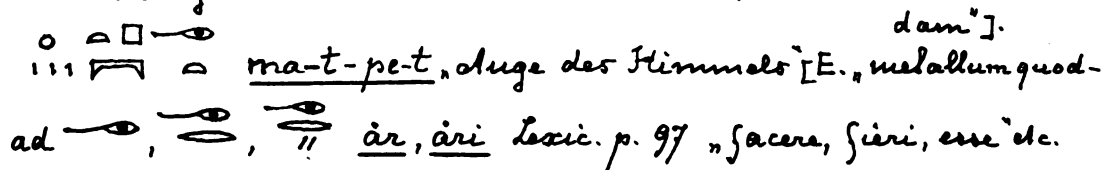 dam"].
ma-t-pe-t „Auge des Himmels" [E. „metallum quod-
ad , , ȧr, ȧri Lexic. p. 97 „facere, fieri, esse" etc.